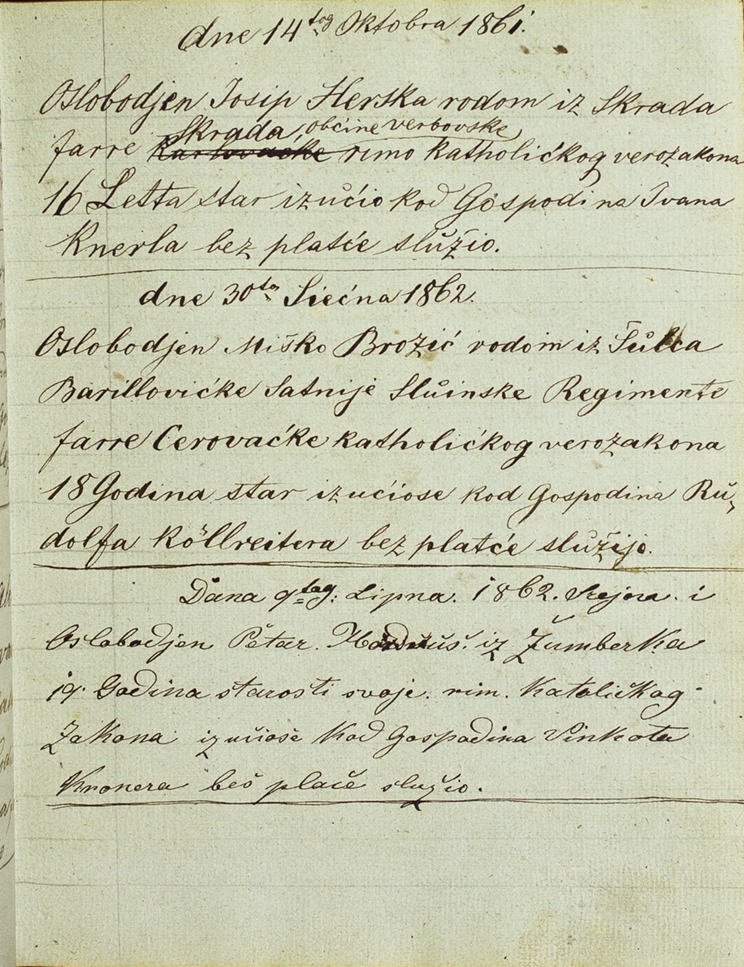 dne 14tog Oktobra 1861.
Oslobodjen Josip Herska rodom iz Skrada
Skrada, obćine verbovske
farre Karlovačke rimo katholićkog verozakona
16 Letta star izučio kod Gospodina Ivana
Knerla bez platće slůžio.
dne 30tog Siećna 1862.
Oslobodjen Miško Brozić rodom iz
Barillovićke Satnije Slůinske Regimente
farre Cerovaćke katholićkog verozakona
18 Godina star izućiose kod Gospodina Rů,
dolfa Köllreitera bez platće slůžijo.
Dana 9tog: Lipna. 1862. i
Oslobodjen Petar. iz Žumberka
19. Godina starosti svoje. rim. Katoličkog
Zakona izučiose Kod Gospodina Vinkota
Knonera beš plače služio.